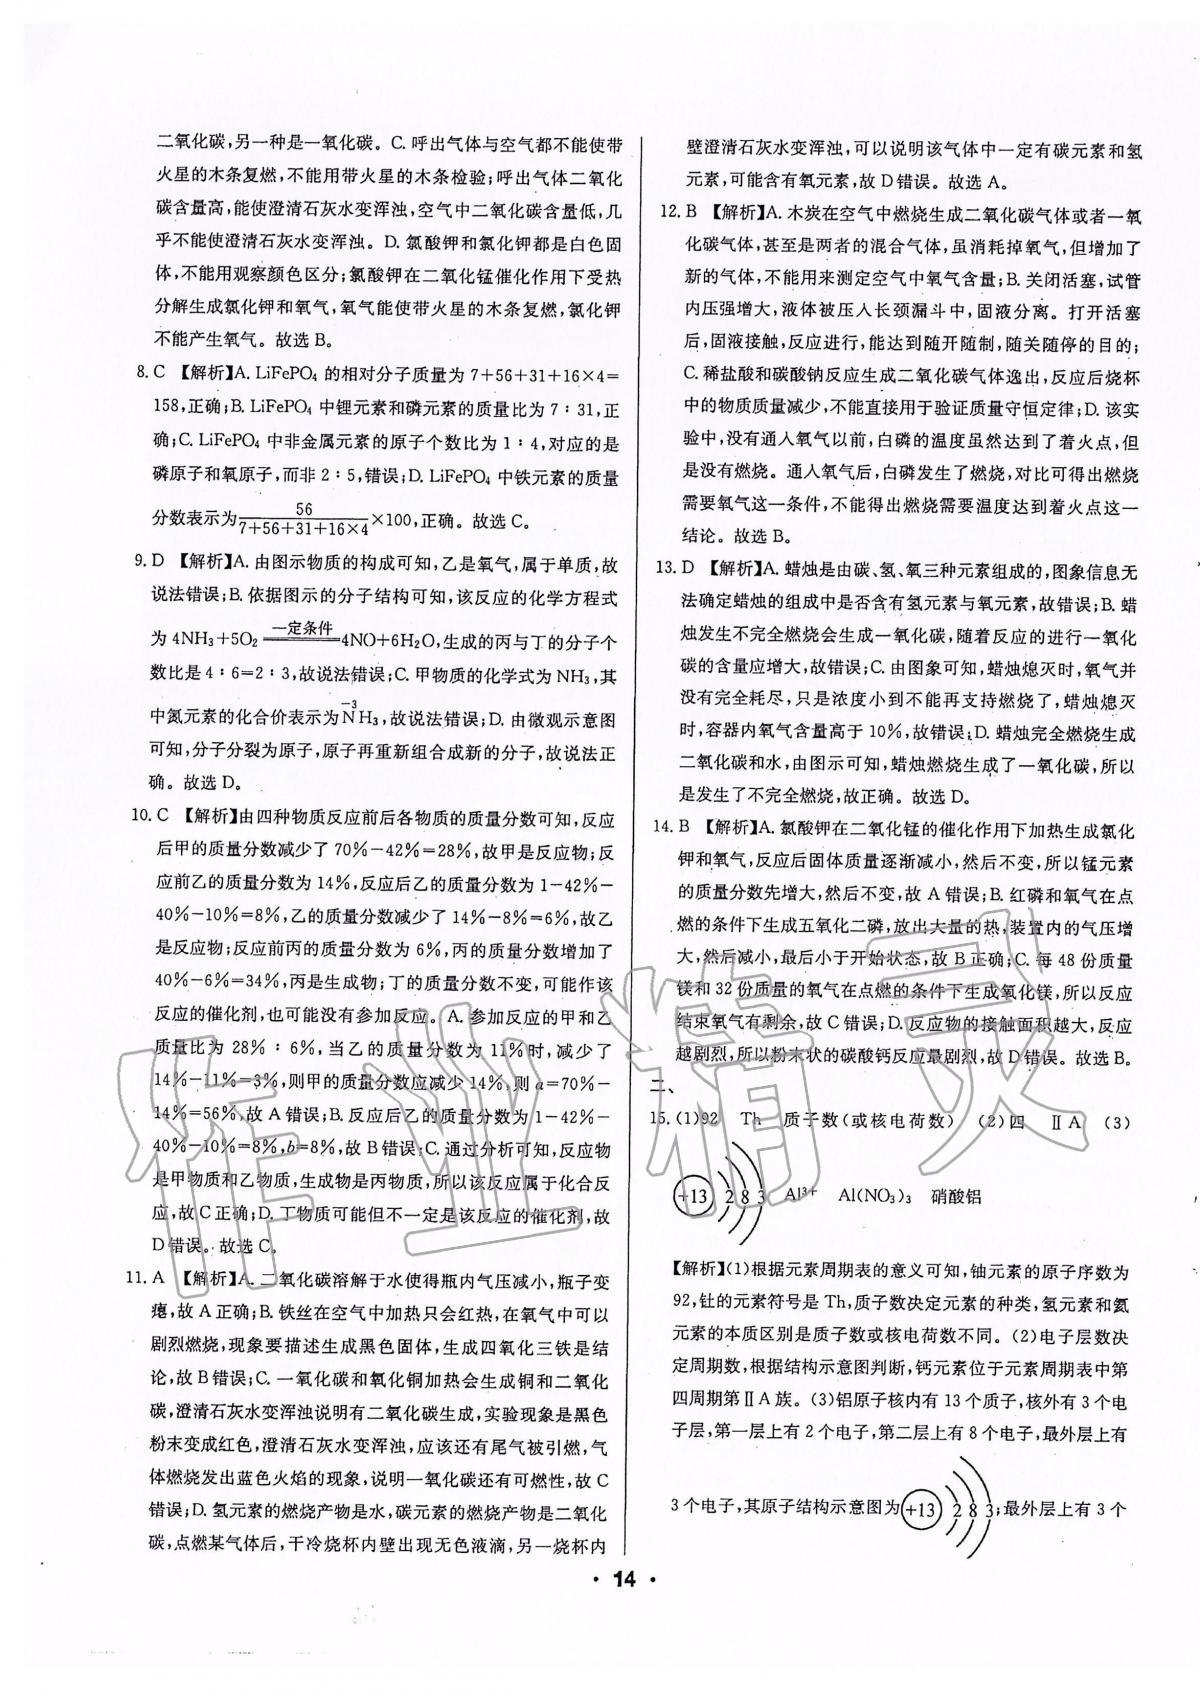 二氧化碳,另一种是一氧化碳。C. 呼出气体与空气都不能使带
火星的木条复燃,不能用带火星的木条检验;呼出气体二氧化
碳含量高,能使澄清石灰水变浑浊,空气中二氧化碳含量低,几
乎不能使澄清石灰水变浑浊。D. 氯酸钾和氯化钾都是白色固
体,不能用观察颜色区分;氯酸钾在二氧化锰催化作用下受热
分解生成氯化钾和氧气,氧气能使带火星的木条复燃,氯化钾
不能产生氧气。故选 B。
8. C 【解析】A. LiFePO₄ 的相对分子质量为 7+56+31+16×4=
158,正确;B. LiFePO₄ 中锂元素和磷元素的质量比为 7∶31,正
确;C. LiFePO₄ 中非金属元素的原子个数比为 1∶4,对应的是
磷原子和氧原子,而非 2∶5,错误;D. LiFePO₄ 中铁元素的质量
分数表示为 56/(7+56+31+16×4) ×100,正确。故选 C。
9. D 【解析】A. 由图示物质的构成可知,乙是氧气,属于单质,故
说法错误;B. 依据图示的分子结构可知,该反应的化学方程式
为 4NH₃+5O₂ =一定条件= 4NO+6H₂O,生成的丙与丁的分子个
数比是 4∶6=2∶3,故说法错误;C. 甲物质的化学式为 NH₃,其
中氮元素的化合价表示为 -3 NH₃,故说法错误;D. 由微观示意图
可知,分子分裂为原子,原子再重新组合成新的分子,故说法正
确。故选 D。
10. C 【解析】由四种物质反应前后各物质的质量分数可知,反应
后甲的质量分数减少了 70%-42%=28%,故甲是反应物;反
应前乙的质量分数为 14%,反应后乙的质量分数为 1-42%-
40%-10%=8%,乙的质量分数减少了 14%-8%=6%,故乙
是反应物;反应前丙的质量分数为 6%,丙的质量分数增加了
40%-6%=34%,丙是生成物;丁的质量分数不变,可能作该
反应的催化剂,也可能没有参加反应。A. 参加反应的甲和乙
质量比为 28%∶6%,当乙的质量分数为 11%时,减少了
14%-11%=3%,则甲的质量分数应减少 14%,则 a=70%-
14%=56%,故 A 错误;B. 反应后乙的质量分数为 1-42%-
40%-10%=8%,b=8%,故 B 错误;C. 通过分析可知,反应物
是甲物质和乙物质,生成物是丙物质,所以该反应属于化合反
应,故 C 正确;D. 丁物质可能但不一定是该反应的催化剂,故
D 错误。故选 C。
11. A 【解析】A. 二氧化碳溶解于水使得瓶内气压减小,瓶子变
瘪,故 A 正确;B. 铁丝在空气中加热只会红热,在氧气中可以
剧烈燃烧,现象要描述生成黑色固体,生成四氧化三铁是结
论,故 B 错误;C. 一氧化碳和氧化铜加热会生成铜和二氧化
碳,澄清石灰水变浑浊说明有二氧化碳生成,实验现象是黑色
粉末变成红色,澄清石灰水变浑浊,应该还有尾气被引燃,气
体燃烧发出蓝色火焰的现象,说明一氧化碳还有可燃性,故 C
错误;D. 氢元素的燃烧产物是水,碳元素的燃烧产物是二氧化
碳,点燃某气体后,干冷烧杯内壁出现无色液滴,另一烧杯内
壁澄清石灰水变浑浊,可以说明该气体中一定有碳元素和氢
元素,可能含有氧元素,故 D 错误。故选 A。
12. B 【解析】A. 木炭在空气中燃烧生成二氧化碳气体或者一氧
化碳气体,甚至是两者的混合气体,虽消耗掉氧气,但增加了
新的气体,不能用来测定空气中氧气含量;B. 关闭活塞,试管
内压强增大,液体被压入长颈漏斗中,固液分离。打开活塞
后,固液接触,反应进行,能达到随开随制,随关随停的目的;
C. 稀盐酸和碳酸钠反应生成二氧化碳气体逸出,反应后烧杯
中的物质质量减少,不能直接用于验证质量守恒定律;D. 该实
验中,没有通入氧气以前,白磷的温度虽然达到了着火点,但
是没有燃烧。通入氧气后,白磷发生了燃烧,对比可得出燃烧
需要氧气这一条件,不能得出燃烧需要温度达到着火点这一
结论。故选 B。
13. D 【解析】A. 蜡烛是由碳、氢、氧三种元素组成的,图象信息无
法确定蜡烛的组成中是否含有氢元素与氧元素,故错误;B. 蜡
烛发生不完全燃烧会生成一氧化碳,随着反应的进行一氧化
碳的含量应增大,故错误;C. 由图象可知,蜡烛熄灭时,氧气并
没有完全耗尽,只是浓度小到不能再支持燃烧了,蜡烛熄灭
时,容器内氧气含量高于 10%,故错误;D. 蜡烛完全燃烧生成
二氧化碳和水,由图示可知,蜡烛燃烧生成了一氧化碳,所以
是发生了不完全燃烧,故正确。故选 D。
14. B 【解析】A. 氯酸钾在二氧化锰的催化作用下加热生成氯化
钾和氧气,反应后固体质量逐渐减小,然后不变,所以锰元素
的质量分数先增大,然后不变,故 A 错误;B. 红磷和氧气在点
燃的条件下生成五氧化二磷,放出大量的热,装置内的气压增
大,然后减小,最后小于开始状态,故 B 正确;C. 每 48 份质量
镁和 32 份质量的氧气在点燃的条件下生成氧化镁,所以反应
结束氧气有剩余,故 C 错误;D. 反应物的接触面积越大,反应
越剧烈,所以粉末状的碳酸钙反应最剧烈,故 D 错误。故选 B。
二、
15. (1)92 Th 质子数(或核电荷数) (2)四 ⅡA (3)
+13 2 8 3 Al³⁺ Al(NO₃)₃ 硝酸铝
【解析】(1)根据元素周期表的意义可知,铀元素的原子序数为
92,钍的元素符号是 Th,质子数决定元素的种类,氢元素和氦
元素的本质区别是质子数或核电荷数不同。(2)电子层数决
定周期数,根据结构示意图判断,钙元素位于元素周期表中第
四周期第ⅡA 族。(3)铝原子核内有 13 个质子,核外有 3 个电
子层,第一层上有 2 个电子,第二层上有 8 个电子,最外层上有
3 个电子,其原子结构示意图为 +13 2 8 3 ;最外层上有 3 个
· 14 ·
作业精灵